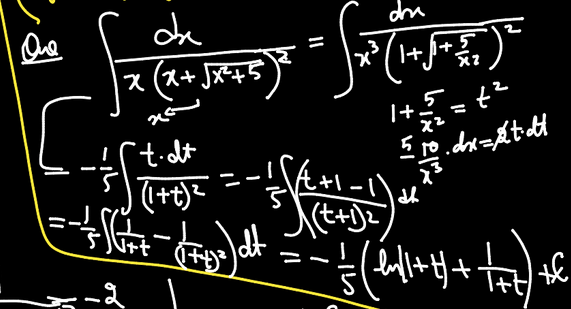 Que ∫ dx / x(x+√x²+5)² = ∫ dx / x³(1+√1+5/x²)²
x
1 + 5/x² = t²
5 10/x³ . dx = 2t.dt
= -1/5 ∫ t.dt / (1+t)² = -1/5 ∫ (t+1-1 / (t+1)²) dt
= -1/5 ∫ (1/1+t - 1/(1+t)²) dt = -1/5 (ln|1+t| + 1/1+t) + C
= -2